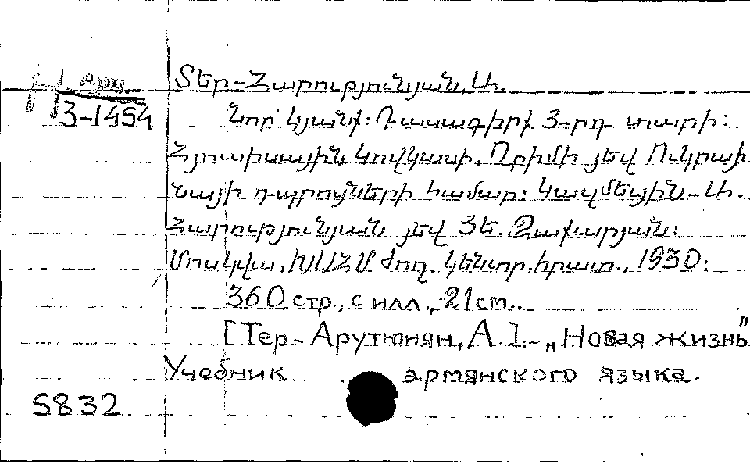 Տեր-Հարությունյան, Ա.
3-1454
Նոր կյանք: Դասագիրք 3-րդ տարի:
Հյուսիսային Կովկասի, Ղրիմի յեվ Ուկրայի
նայի դպրոցների համար: Կազմեցին- Ա.
Հարությունյան յեվ Յե. Զաքարյան:
Մոսկվա, ԽՍՀՄ ժող. կենտր. հրատ., 1930:
360 стр., с илл., 21 см..
[Тер-Арутюнян, А.].- „Новая жизнь"
Учебник армянского языка.
5832.